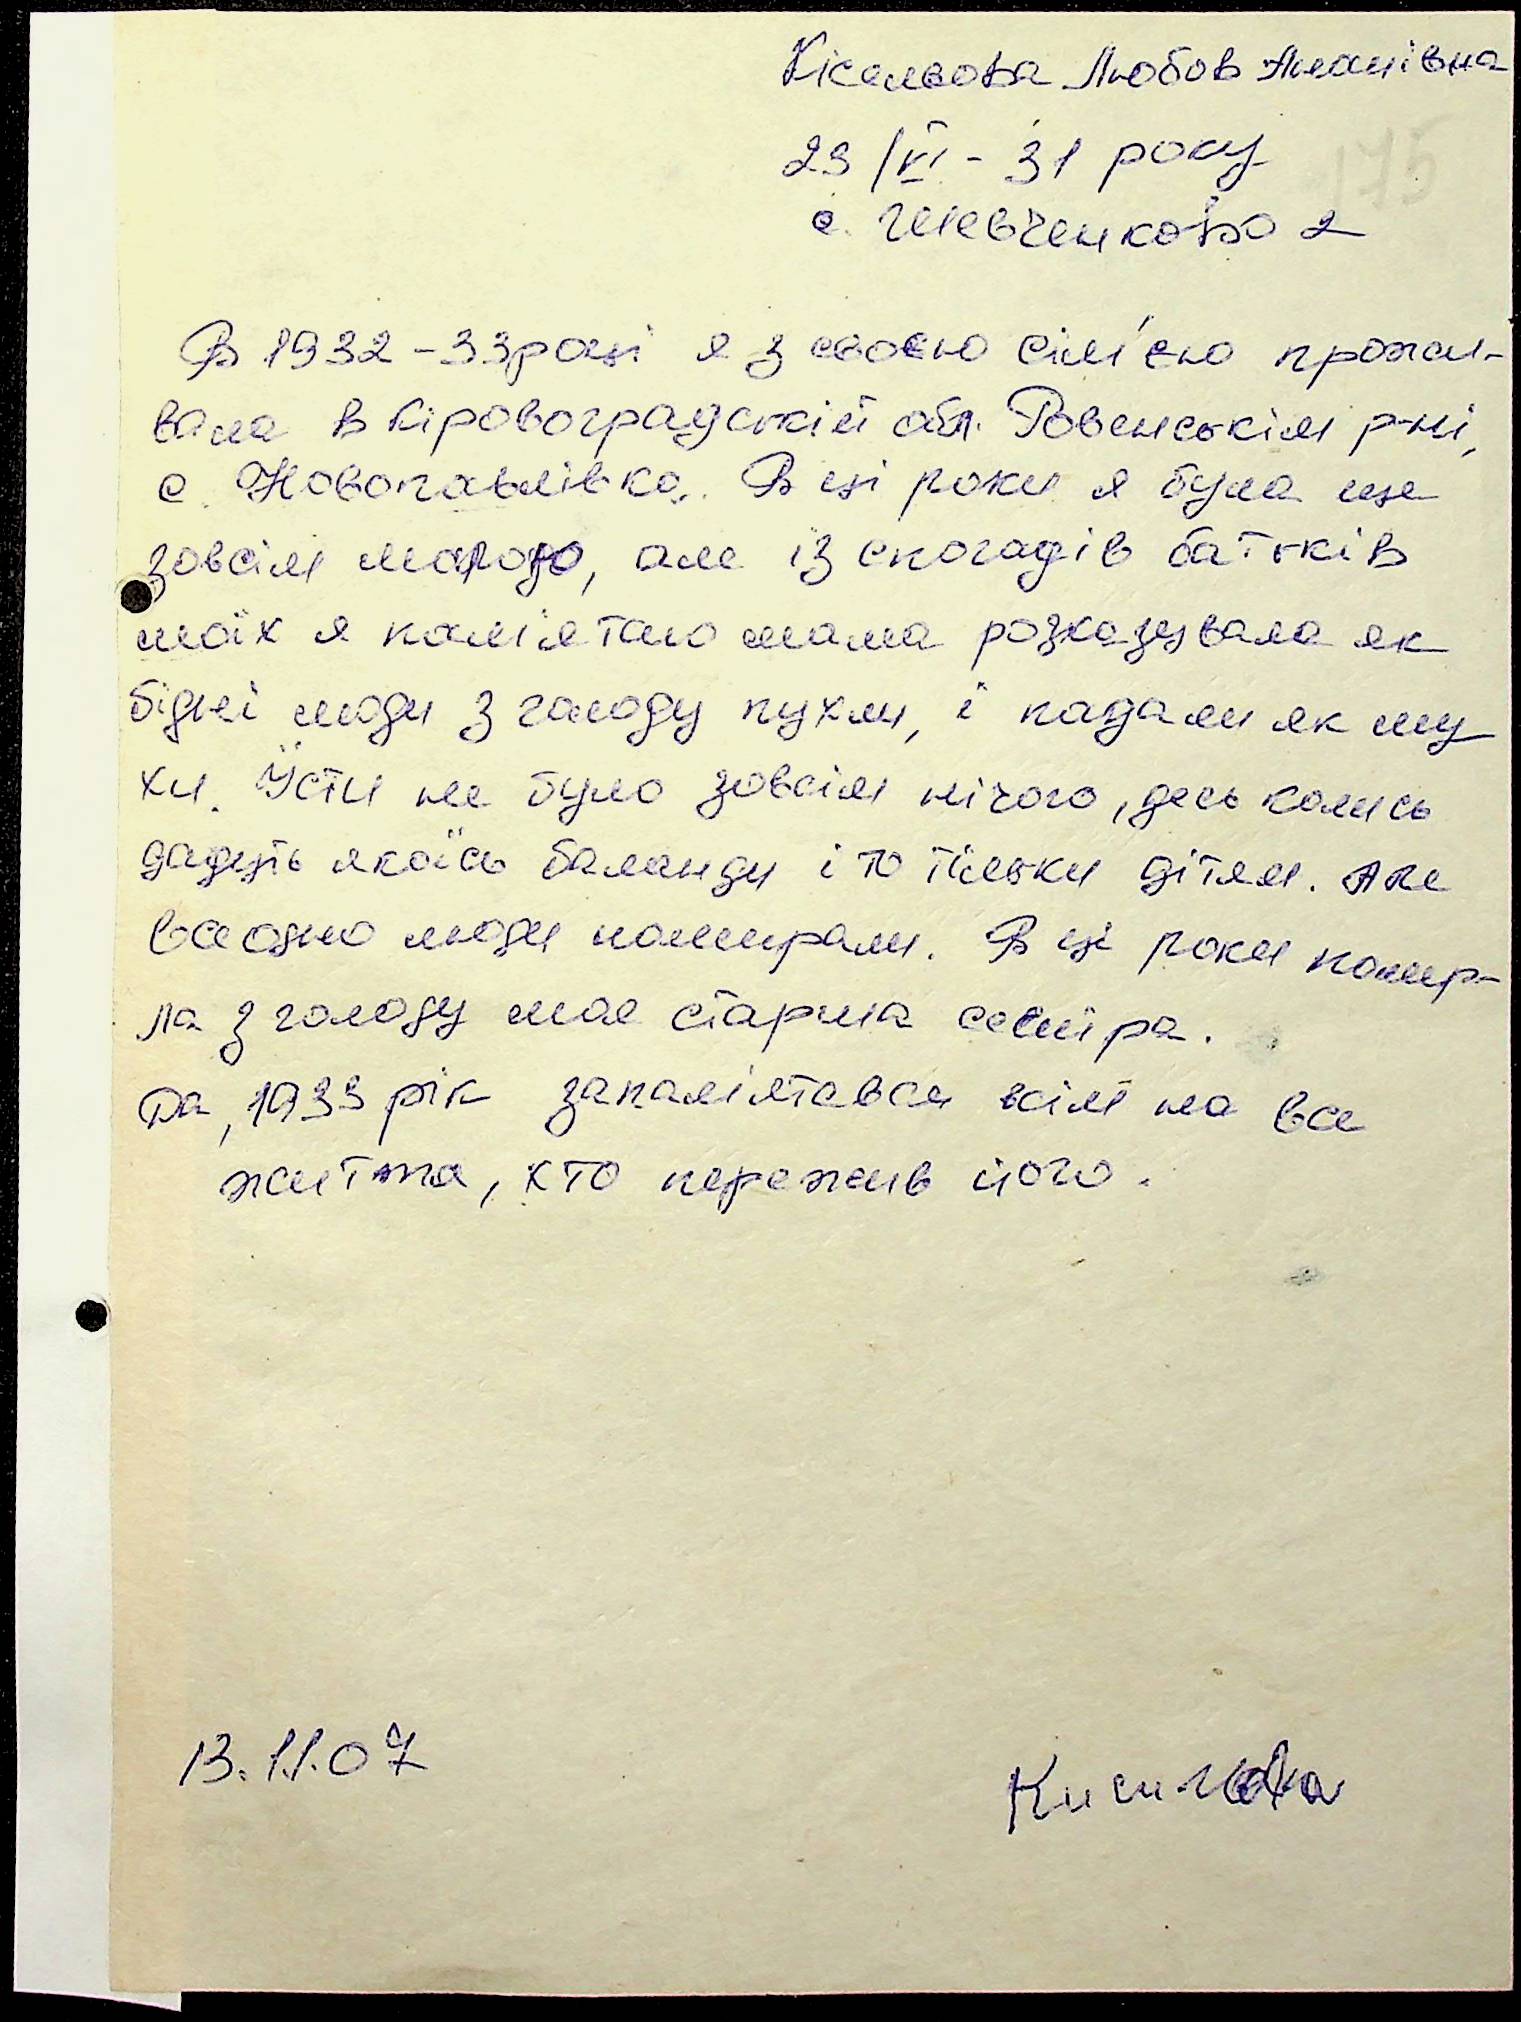 Кісельова Любов Ананівна
175
23/VI - 31 року
с. Шевченково 2
В 1932-33 році я з своєю сім'єю прожи-
вала в Кіровоградській обл. Ровенськім р-ні,
с. Новопавлівка. В ці роки я була ще
зовсім малою, але із спогадів батьків
моїх я пам'ятаю мама розказувала як
бідні люди з голоду пухли, і падали як му
хи. Їсти не було зовсім нічого, десь колись
дадуть якоїсь баланди і то тільки дітям. Але
все одно люди помирали. В ці роки помер-
ла з голоду моя старша сестра.
Да, 1933 рік запам'ятався всім на все
життя, хто пережив його.
13.11.07